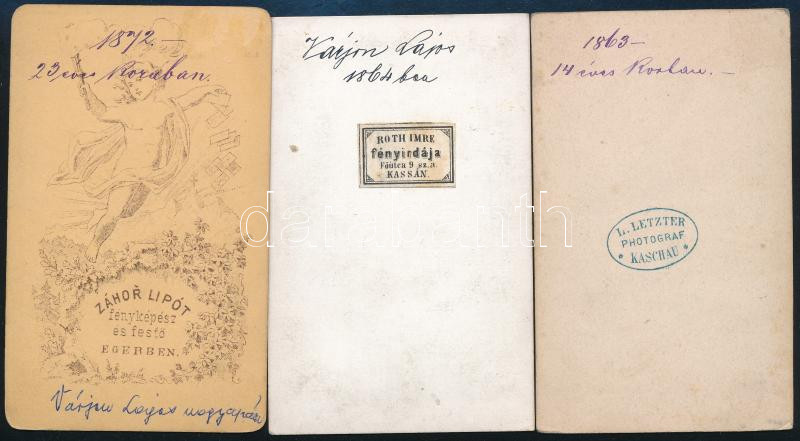 1872 –
23 éves Korában.
ZÁHOŘ LIPÓT
fényképész
és festő
EGERBEN.
Várjon Lajos nagyapám
Várjon Lajos
1864 ben
ROTH IMRE
fényirdája
Főutca 9 sz.a.
KASSÁN.
1863 –
14 éves Korban. –
L. LETZTER
PHOTOGRAF
* KASCHAU *